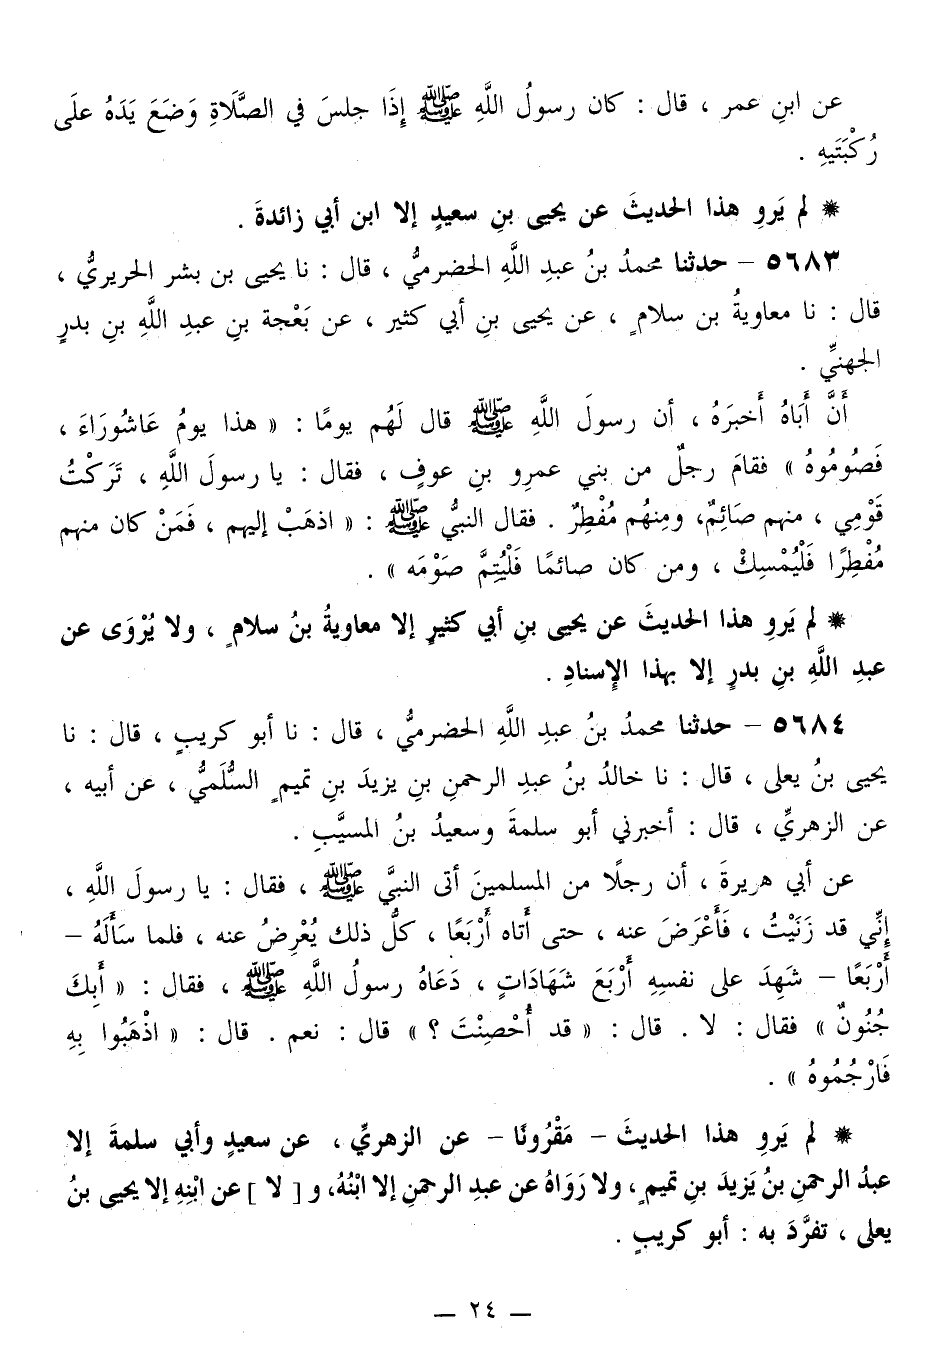 عن ابنِ عمر ، قال : كان رسولُ اللَّهِ ﷺ إِذَا جلسَ في الصَّلَاةِ وَضَعَ يَدَهُ علَى
رُكْبَتَيهِ .
* لم يَروِ هذا الحديثَ عن يحيى بنِ سعيدٍ إلا ابن أبي زائدةَ .
٥٦٨٣ – حدثنا محمدُ بنُ عبدِ اللَّهِ الحضرميُّ ، قال : نا يحيى بن بشر الحريريُّ ،
قال : نا معاويةُ بن سلامٍ ، عن يحيى بنِ أبي كثير ، عن بَعْجة بنِ عبدِ اللَّهِ بنِ بدرٍ
الجهنيِّ .
أَنَّ أَبَاهُ أَخبرَهُ ، أن رسولَ اللَّهِ ﷺ قال لَهُم يومًا : « هذا يومُ عَاشُورَاءَ ،
فَصُومُوهُ » فقامَ رجلٌ من بني عمرِو بنِ عوفٍ ، فقال : يا رسولَ اللَّهِ ، تَرَكْتُ
قَوْمِي ، منهم صَائِمٌ، ومِنهُم مُفْطِرٌ . فقال النبيُّ ﷺ : « اذهَبْ إليهم ، فَمَنْ كان منهم
مُفْطِرًا فَلْيُمْسِكْ ، ومن كان صائمًا فَلْيُتِمَّ صَوْمَه » .
* لم يَروِ هذا الحديثَ عن يحيى بنِ أبي كثيرٍ إلا معاويةُ بنُ سلامٍ ، ولا يُرْوَى عن
عبدِ اللَّهِ بنِ بدرٍ إلا بهذا الإِسنادِ .
٥٦٨٤ – حدثنا محمدُ بنُ عبدِ اللَّهِ الحضرميُّ ، قال : نا أبو كريبٍ ، قال : نا
يحيى بنُ يعلى ، قال : نا خالدُ بنُ عبدِ الرحمنِ بنِ يزيدَ بنِ تميمٍ السُّلَميُّ ، عن أبيه ،
عن الزهريِّ ، قال : أخبرني أبو سلمةَ وسعيدُ بنُ المسيَّبِ .
عن أبي هريرةَ ، أن رجلًا من المسلمينَ أتى النبيَّ ﷺ ، فقال : يا رسولَ اللَّهِ ،
إِنِّي قد زَنَيْتُ ، فَأَعْرَضَ عنه ، حتى أَتاه أَرْبَعًا ، كلُّ ذلك يُعْرِضُ عنه ، فلما سَأَلَهُ –
أَرْبَعًا – شَهِدَ على نفسِهِ أَرْبَعَ شَهَادَاتٍ ، دَعَاهُ رسولُ اللَّهِ ﷺ ، فقال : « أَبِكَ
جُنُونٌ » فقال : لا . قال : « قد أُحْصِنْتَ ؟ » قال : نعم . قال : « اذْهَبُوا بِهِ
فَارْجُمُوهُ » .
* لم يَروِ هذا الحديثَ – مَقْرُونًا – عن الزهريِّ ، عن سعيدٍ وأبي سلمةَ إلا
عبدُ الرحمنِ بنُ يَزيدَ بنِ تميمٍ ، ولا رَوَاهُ عن عبدِ الرحمنِ إلا ابْنُهُ، و [ لا ] عن ابْنِهِ إلا يحيى بنُ
يعلى ، تفرَّدَ به : أبو كريبٍ .
— ٢٤ —